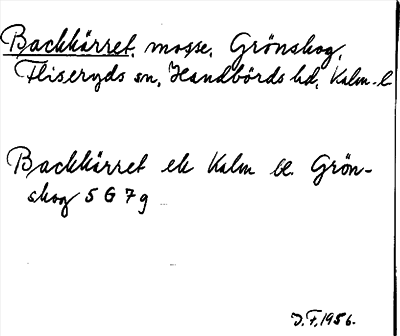 Backkärret, mosse, Grönskog,
Fliseryds sn, Handbörds hd, Kalm. l
Backkärret ek Kalm bl. Grön-
skog 5 G 7 g
J.F. 1956.